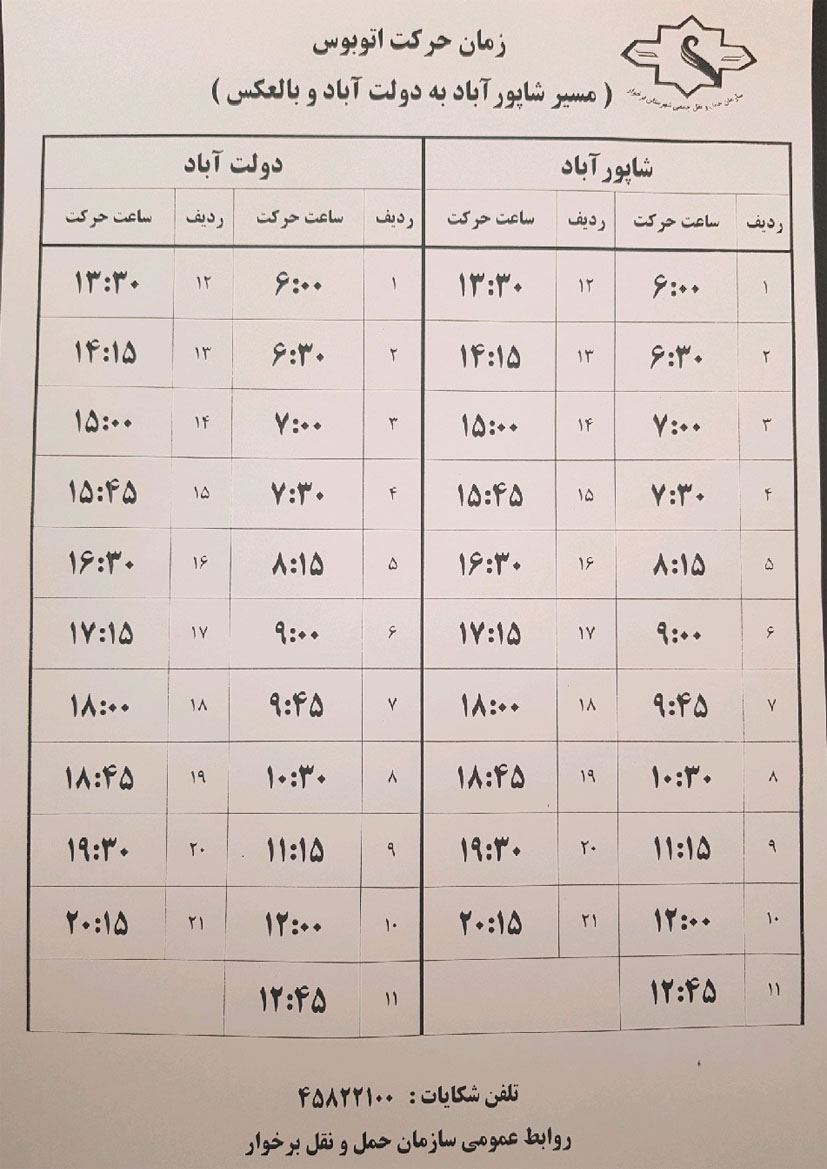 سازمان حمل و نقل جمعی شهرستان برخوار
زمان حرکت اتوبوس
( مسیر شاپورآباد به دولت آباد و بالعکس )
شاپورآباد دولت آباد
ردیف ساعت حرکت ردیف ساعت حرکت ردیف ساعت حرکت ردیف ساعت حرکت
۱ ۶:۰۰ ۱۲ ۱۳:۳۰ ۱ ۶:۰۰ ۱۲ ۱۳:۳۰
۲ ۶:۳۰ ۱۳ ۱۴:۱۵ ۲ ۶:۳۰ ۱۳ ۱۴:۱۵
۳ ۷:۰۰ ۱۴ ۱۵:۰۰ ۳ ۷:۰۰ ۱۴ ۱۵:۰۰
۴ ۷:۳۰ ۱۵ ۱۵:۴۵ ۴ ۷:۳۰ ۱۵ ۱۵:۴۵
۵ ۸:۱۵ ۱۶ ۱۶:۳۰ ۵ ۸:۱۵ ۱۶ ۱۶:۳۰
۶ ۹:۰۰ ۱۷ ۱۷:۱۵ ۶ ۹:۰۰ ۱۷ ۱۷:۱۵
۷ ۹:۴۵ ۱۸ ۱۸:۰۰ ۷ ۹:۴۵ ۱۸ ۱۸:۰۰
۸ ۱۰:۳۰ ۱۹ ۱۸:۴۵ ۸ ۱۰:۳۰ ۱۹ ۱۸:۴۵
۹ ۱۱:۱۵ ۲۰ ۱۹:۳۰ ۹ ۱۱:۱۵ ۲۰ ۱۹:۳۰
۱۰ ۱۲:۰۰ ۲۱ ۲۰:۱۵ ۱۰ ۱۲:۰۰ ۲۱ ۲۰:۱۵
۱۱ ۱۲:۴۵ ۱۱ ۱۲:۴۵
تلفن شکایات : ۴۵۸۲۲۱۰۰
روابط عمومی سازمان حمل و نقل برخوار